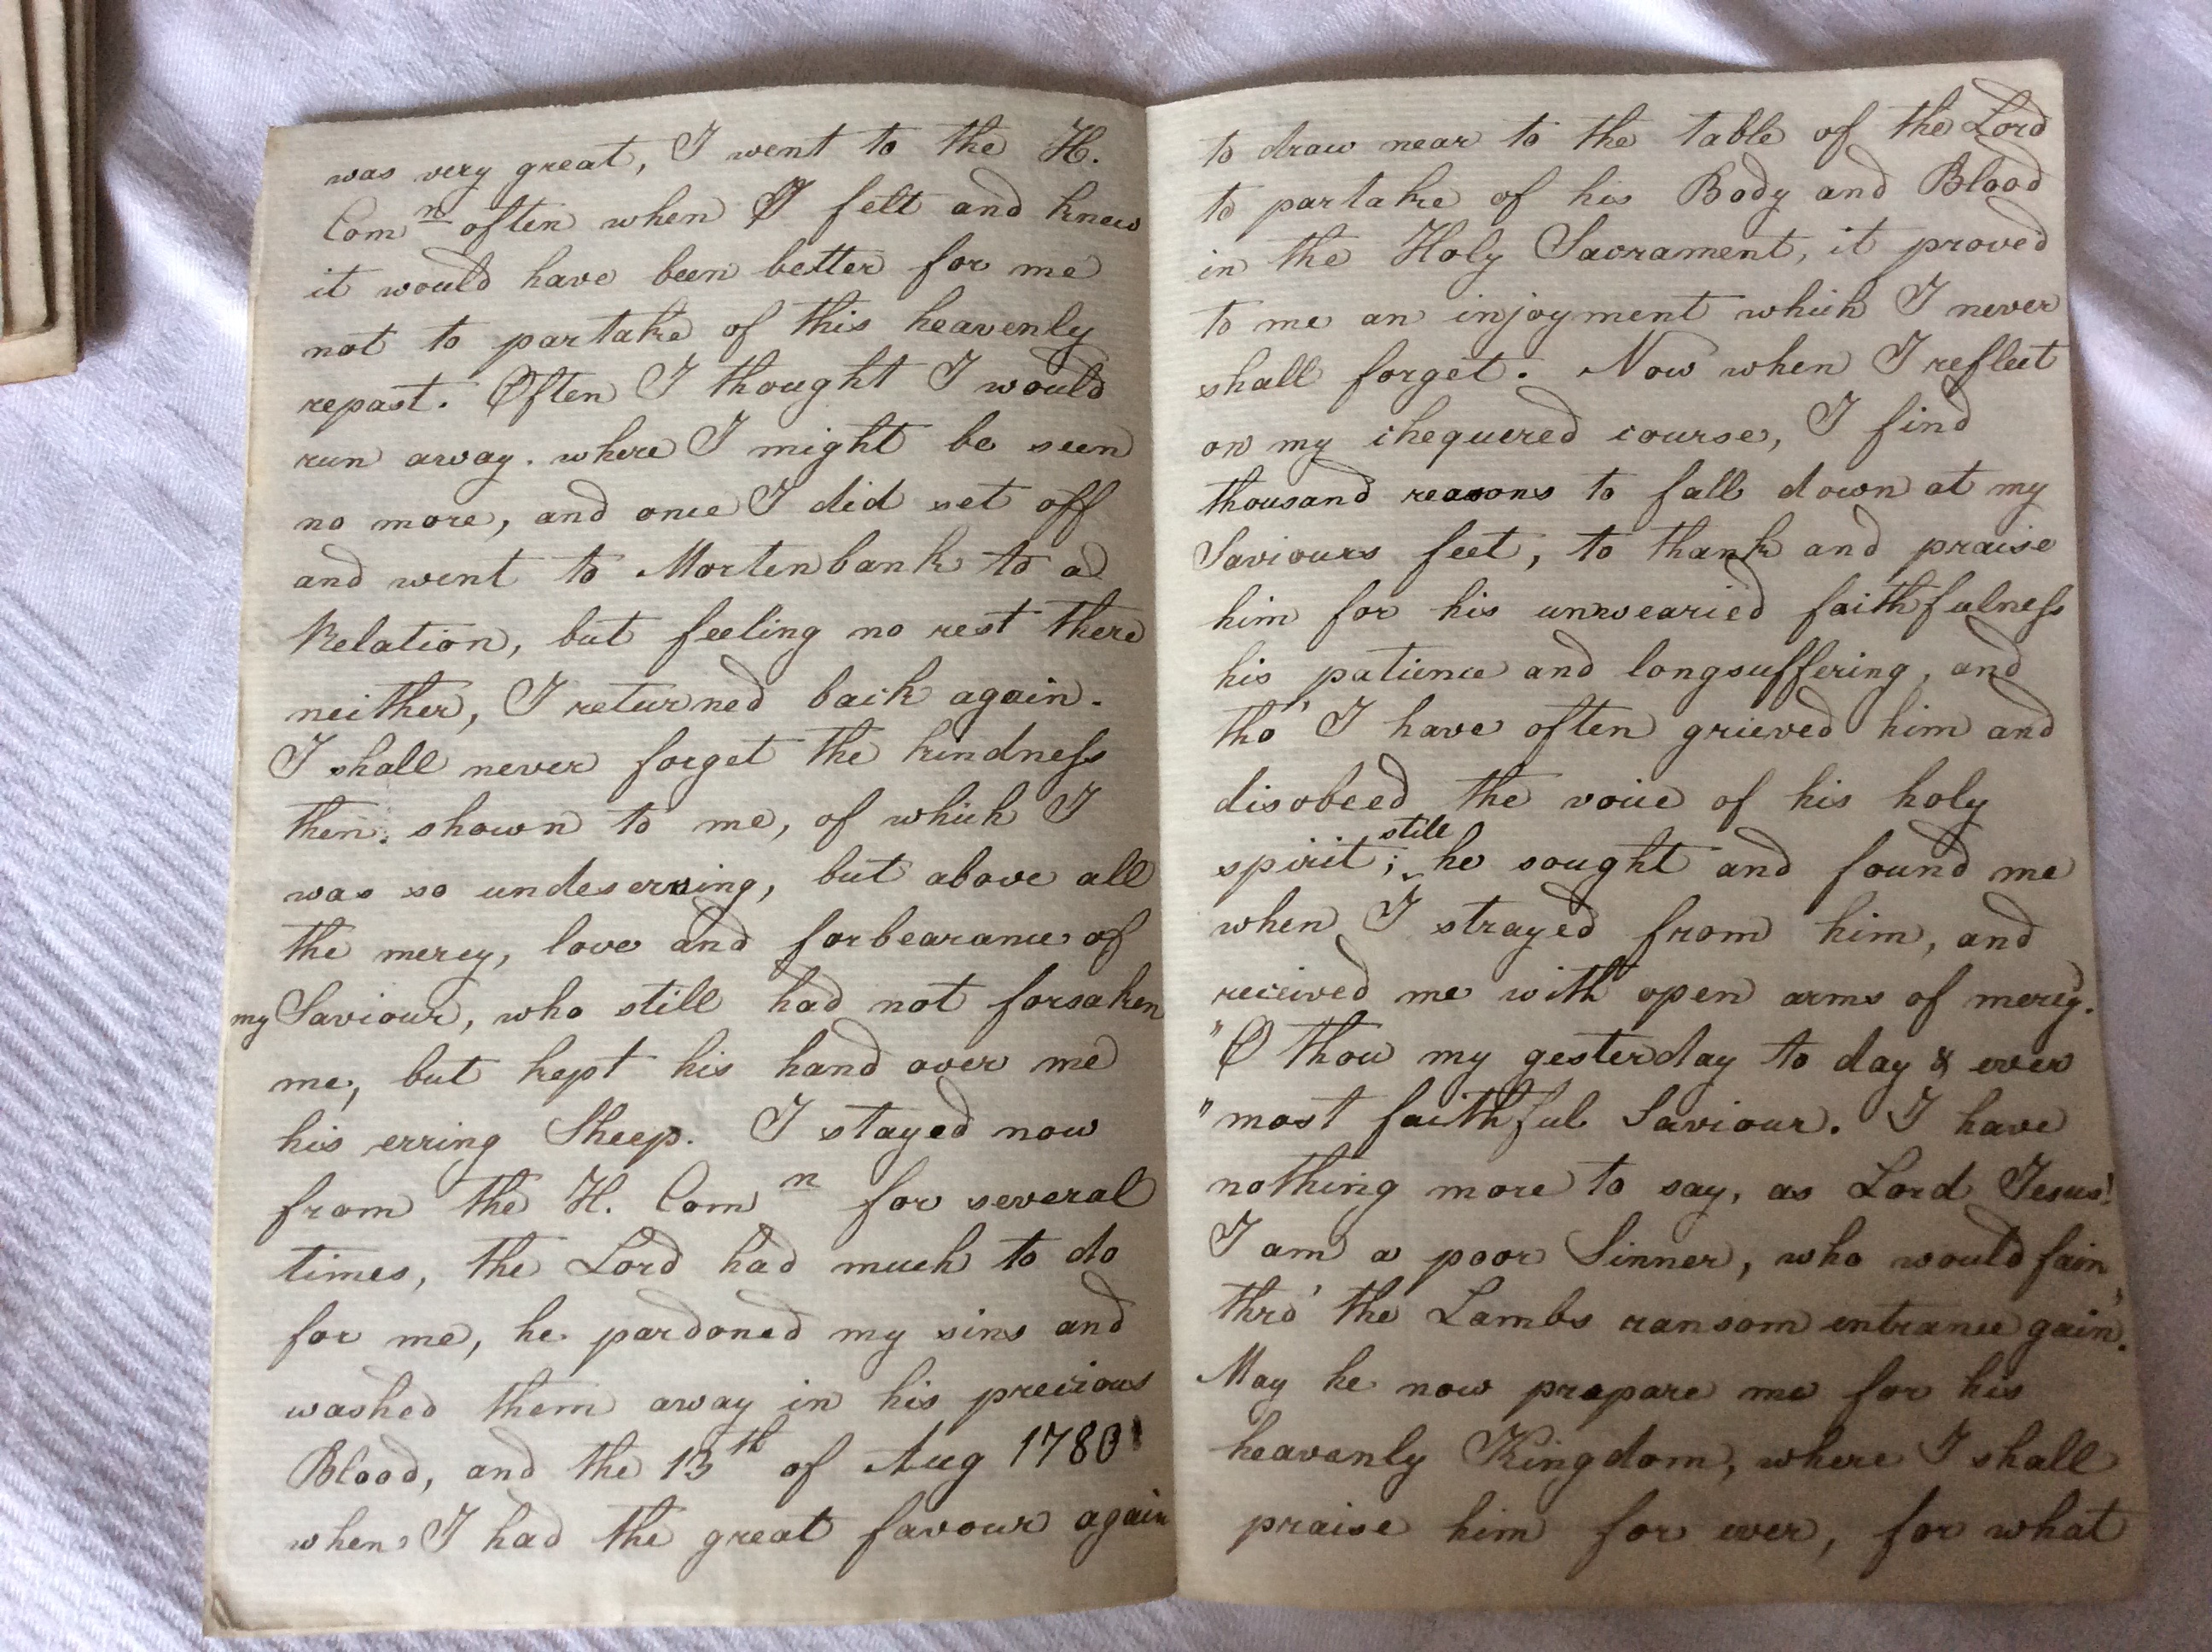 was very great, I went to the H.
Comⁿ often when I felt and knew
it would have been better for me
not to partake of this heavenly
repast. Often I thought I would
run away. where I might be seen
no more, and once I did set off
and went to Mortenbank to a
Relation, but feeling no rest there
neither, I returned back again.
I shall never forget the kindness
then shown to me, of which I
was so undeserving, but above all
the mercy, love and forbearance of
my Saviour, who still had not forsaken
me, but kept his hand over me
his erring Sheep. I stayed now
from the H. Comⁿ for several
times, the Lord had much to do
for me, he pardoned my sins and
washed them away in his precious
Blood, and the 13th of Aug 1780
when I had the great favour again
to draw near to the table of the Lord
to partake of his Body and Blood
in the Holy Sacrament, it proved
to me an injoyment which I never
shall forget. Now when I reflect
on my chequered course, I find
thousand reasons to fall down at my
Saviours feet, to thank and praise
him for his unwearied faithfulness
his patience and longsuffering, and
tho' I have often grieved him and
disobeed the voice of his holy
spirit; still he sought and found me
when I strayed from him, and
received me with open arms of mercy.
"O thou my yesterday to day & ever
"most faithful Saviour. I have
nothing more to say, as Lord Jesus!
I am a poor Sinner, who would fain
thro' the Lambs ransom entrance gain.
May he now prepare me for his
heavenly Kingdom, where I shall
praise him for ever, for what